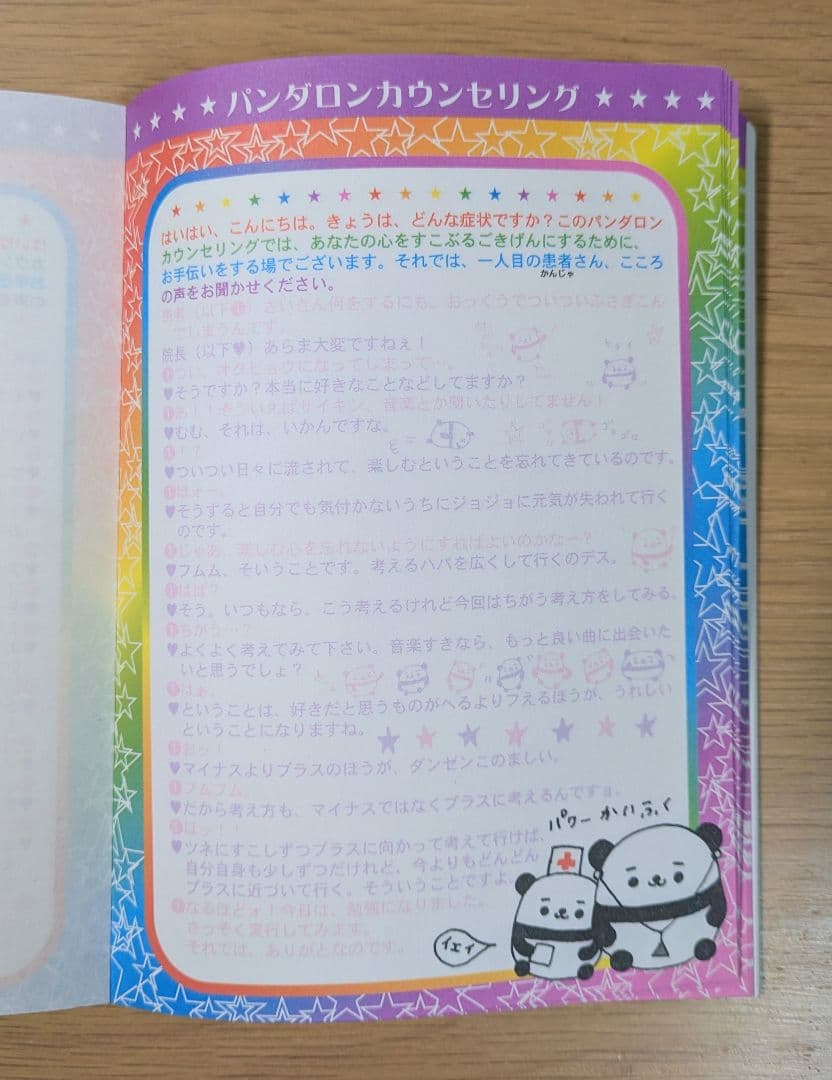 ★ ★ ★ ★ パンダロンカウンセリング ★ ★ ★ ★
はいはい、こんにちは。きょうは、どんな症状ですか？このパンダロン
カウンセリングでは、あなたの心をすこぶるごきげんにするために、
お手伝いをする場でございます。それでは、一人目の患者さん、こころ
かんじゃ
の声をお聞かせください。
患者（以下❶）さいきん何をするにも、おっくうでついついふさぎこん
でしまうんです。
院長（以下♥）あらま大変ですねぇ！
❶つい、オクビョウになってしまって…。
♥そうですか？本当に好きなことなどしてますか？
❶あ！！そういえばサイキン、音楽とか聴いたりしてません！
♥むむ、それは、いかんですな。
❶！？
♥ついつい日々に流されて、楽しむということを忘れてきているのです。
❶ほォー。
♥そうすると自分でも気付かないうちにジョジョに元気が失われて行く
のです。
❶じゃあ、楽しむ心を忘れないようにすればよいのかなー？
♥フムム、そいうことです。考えるハバを広くして行くのデス。
❶はば？
♥そう。いつもなら、こう考えるけれど今回はちがう考え方をしてみる。
❶ちがう…？
♥よくよく考えてみて下さい。音楽すきなら、もっと良い曲に出会いた
いと思うでしょ？
❶はぁ。
♥ということは、好きだと思うものがへるよりフえるほうが、うれしい
ということになりますね。
❶おっ！
♥マイナスよりプラスのほうが、ダンゼンこのましい。
❶フムフム。
♥だから考え方も、マイナスではなくプラスに考えるんですョ。
❶はっ！！
♥ツネにすこしずつプラスに向かって考えて行けば、
自分自身も少しずつだけれど、今よりもどんどん
プラスに近づいて行く。そういうことですよ。
❶なるほどォ！今日は、勉強になりました。
さっそく実行してみます。
それでは、ありがとなのです。
パワーかいふく
イエィ